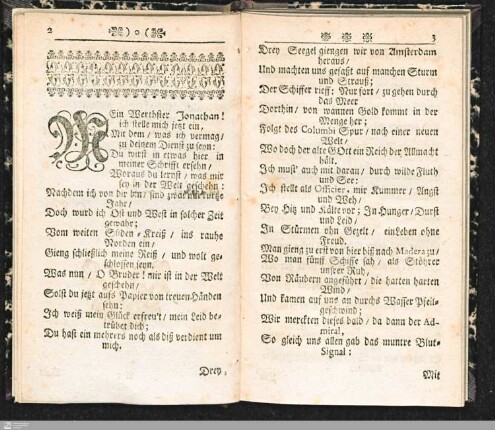 2
Ein Werthster Jonathan!
ich stelle mich jetzt ein,
Mit dem / was ich vermag /
zu deinem Dienst zu seyn:
Du wirst in etwas hier in
meiner Schrifft ersehn /
Woraus du lernst / was mir
sey in der Welt geschehn:
Nachdem ich von dir bin / sind zwar nur kurtze
Jahr /
Doch wurd ich Ost und West in solcher Zeit
gewahr;
Vom weiten Süden-Kreiß / ins rauhe
Norden ein /
Gieng schließlich meine Reiß / und wolt ge-
schlossen seyn.
Was nun / O Bruder! mir ist in der Welt
geschehn /
Solst du jetzt aufs Papier von treuen Händen
sehn:
Ich weiß mein Glück erfreu't / mein Leid be-
trübet dich;
Du hast ein mehrers noch als diß verdient um
mich.
Drey
3
Drey Seegel giengen wir von Amsterdam
heraus /
Und machten uns gefaßt auf manchen Sturm
und Strauß;
Der Schiffer rieff: Nur fort / zu gehen durch
das Meer
Dorthin / von wannen Gold kommt in der
Menge her;
Folgt des Columbi Spur / nach einer neuen
Welt /
Wo doch der alte GOtt ein Reich der Allmacht
hält.
Ich must' auch mit daran / durch wilde Fluth
und See:
Ich stellt als Officier, mir Kummer / Angst
und Weh /
Bey Hitz und Kälte vor; In Hunger / Durst
und Leid /
In Stürmen ohn Gezelt / ein Leben ohne
Freud.
Man gieng zu erst von hier biß nach Madera zu /
Wo man fünff Schiffe sah / als Stöhrer
unsrer Ruh,
Von Räubern angeführt / die harten harten
Wind /
Und kamen auf uns an durchs Wasser Pfeil-
geschwind;
Wir merckten dieses bald / da dann der Ad-
miral,
So gleich uns allen gab das muntre Blut-
Signal:
Mit